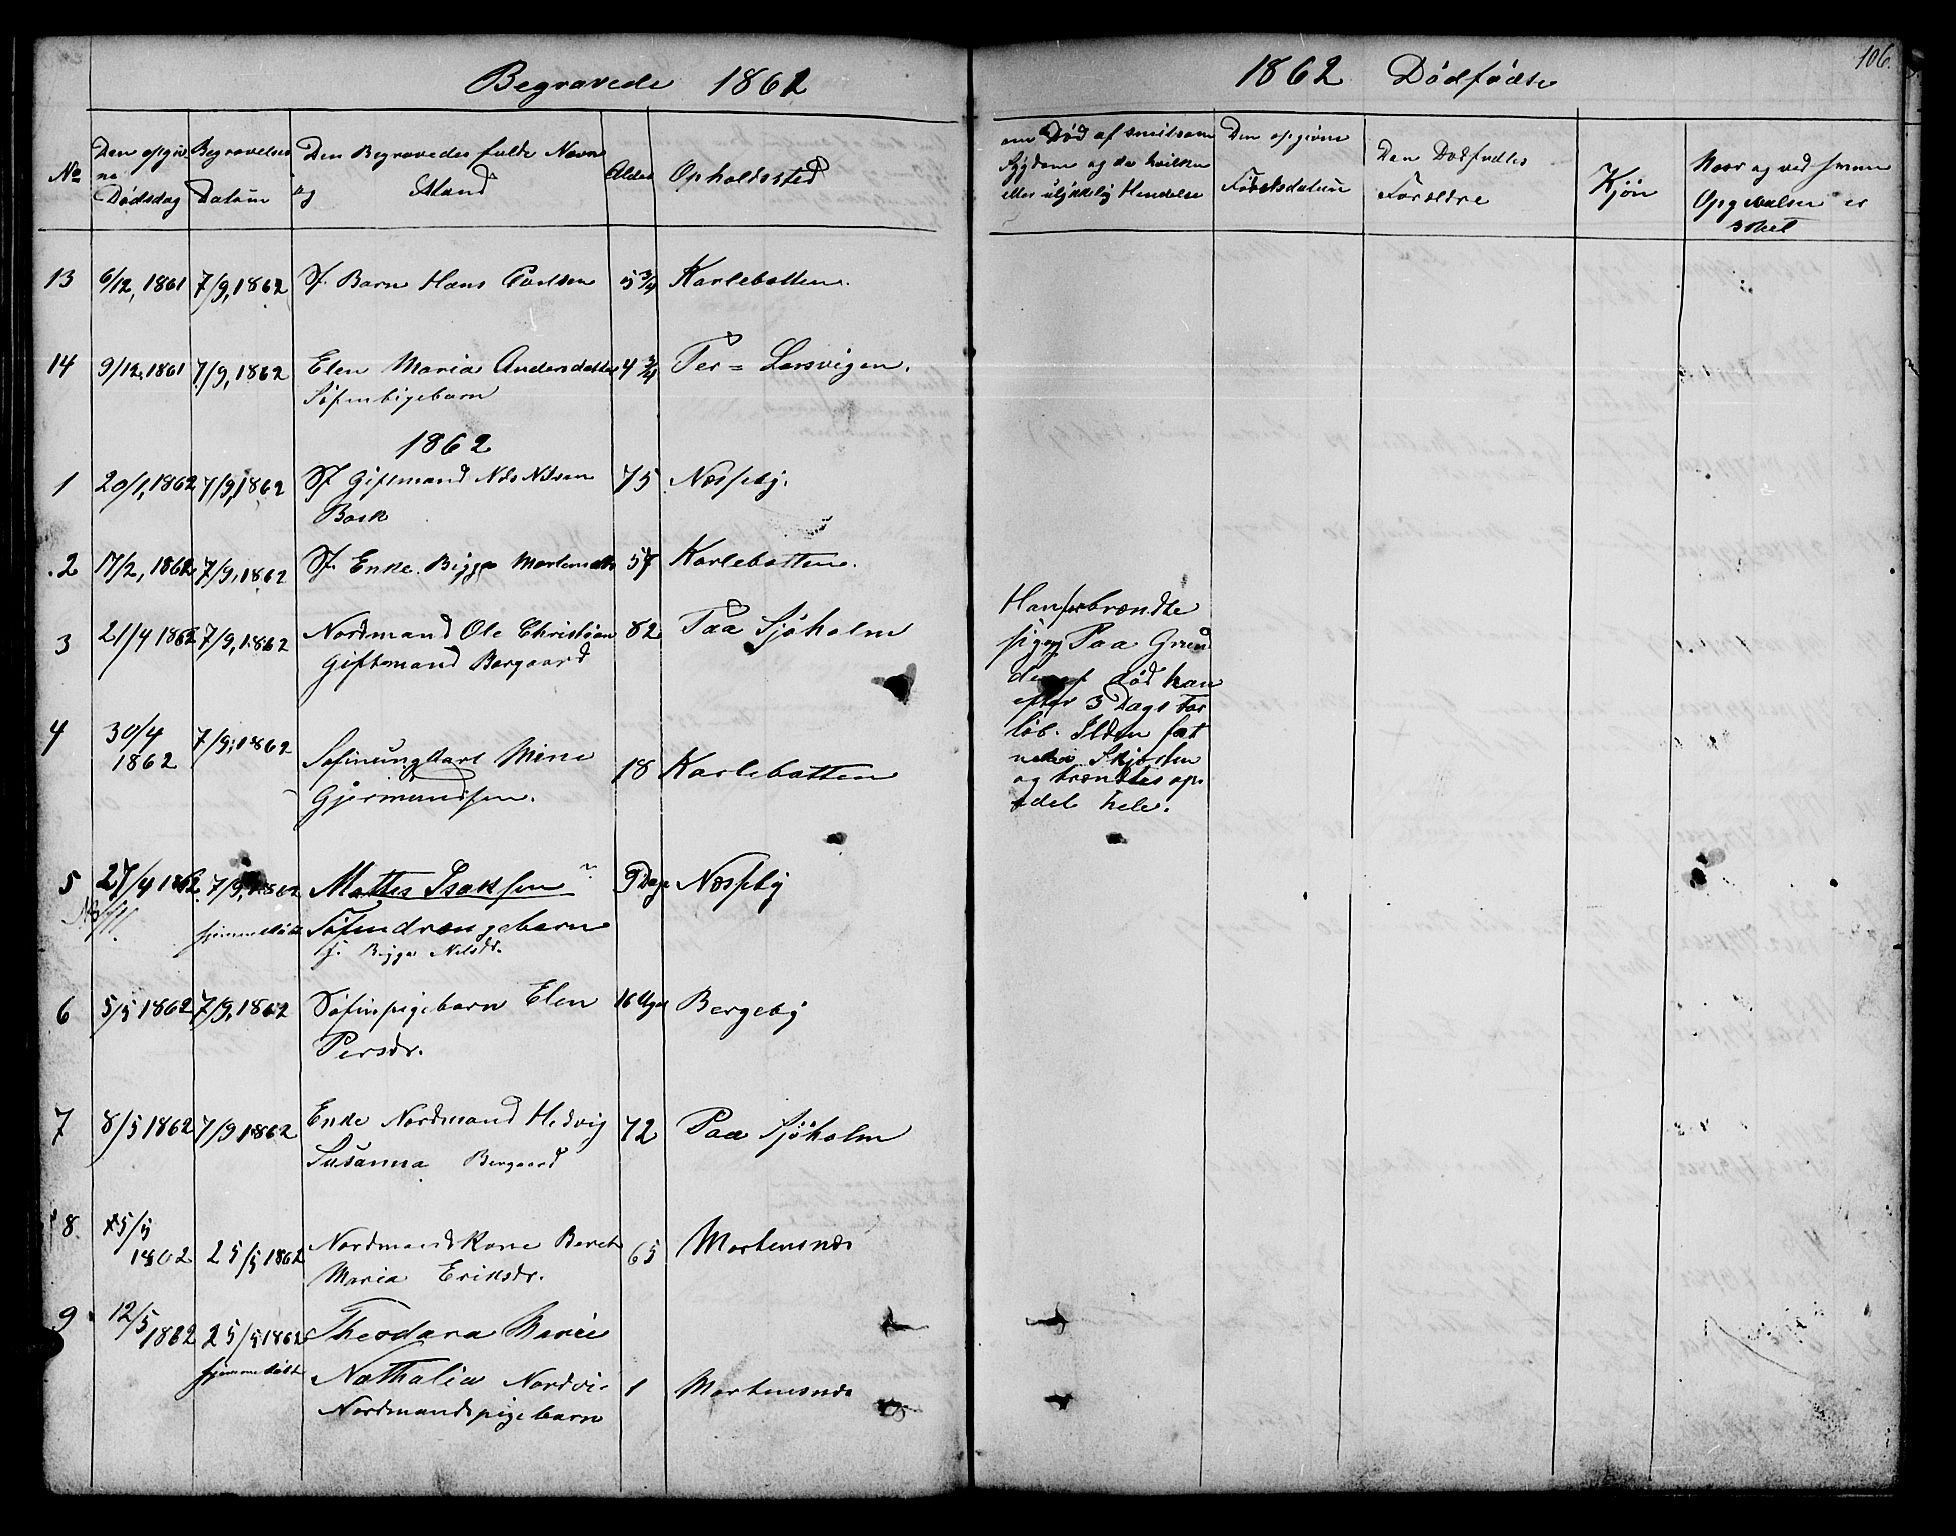 Begravede 1862
1862 Dødfødte
106.
No
Den opgiv
ne
Dødsdag
Begravelses
Datum
Den Begravedes fulde Navn
og Stand
Alder
Opholdssted
om Død af smitsom
Sygdom og da hvilken
eller ulykkelig Hendelse
Den opgivne
Fødselsdatum
Den Dødfødtes
Forældre
Kjøn
Naar og ved hvem
Opgivelsen er
skeet
13 6/12, 1861 7/9, 1862 Sf. Barn Hans Carlsen 5 3/4 Karlebotten.
14 9/12, 1861 7/9, 1862 Elen Maria Andersdatter 4 3/4 Per = Larsvigen.
Søfinbigebarn
1862
1 20/1, 1862 7/9, 1862 Sf Giftmand Nils Nilsen 75 Næsseby.
Bask
2 17/2, 1862 7/9, 1862 Sf. Enke. Bigga Mortensdtr 57 Karlebotten.
3 21/4 1862 7/9, 1862 Nordmand Ole Christian 82 Paa Sjøholm
Giftemand Borgaard
Han forbrændte
sig og Paa Grun
deraf død han
efter 3 Dags For
løb. Ilden fat
nede Skjorten
og brændtes op
det hele.
4 30/4
1862 7/9, 1862 Søfinungkarl Mine
Gjermundsen. 18 Karlebotten
5 27/4 1862 7/9, 1862 Mattis Isaksen 9 Dage Næsseby
NB hjemmedøbt Søfindrængebarn
f. Bigga Nilsdr.
6 5/5 1862 7/9, 1862 Søfinpigebarn Elen 16 Uger Bergeby
Persdr.
7 8/5 1862 7/9 1862 Enke Nordmand Hedvig 72 Paa Sjøholm
Susanna Borgaard
8. 15/5
1862 25/5 1862 Nordmandskone Beret 65 Mortensnæs
Maria Eriksdr.
9 12/5 1862 25/5 1862 Theodora Marie
hjemmedøbt Nathalia Nordvi 1 Mortensnæs
Nordmandspigebarn